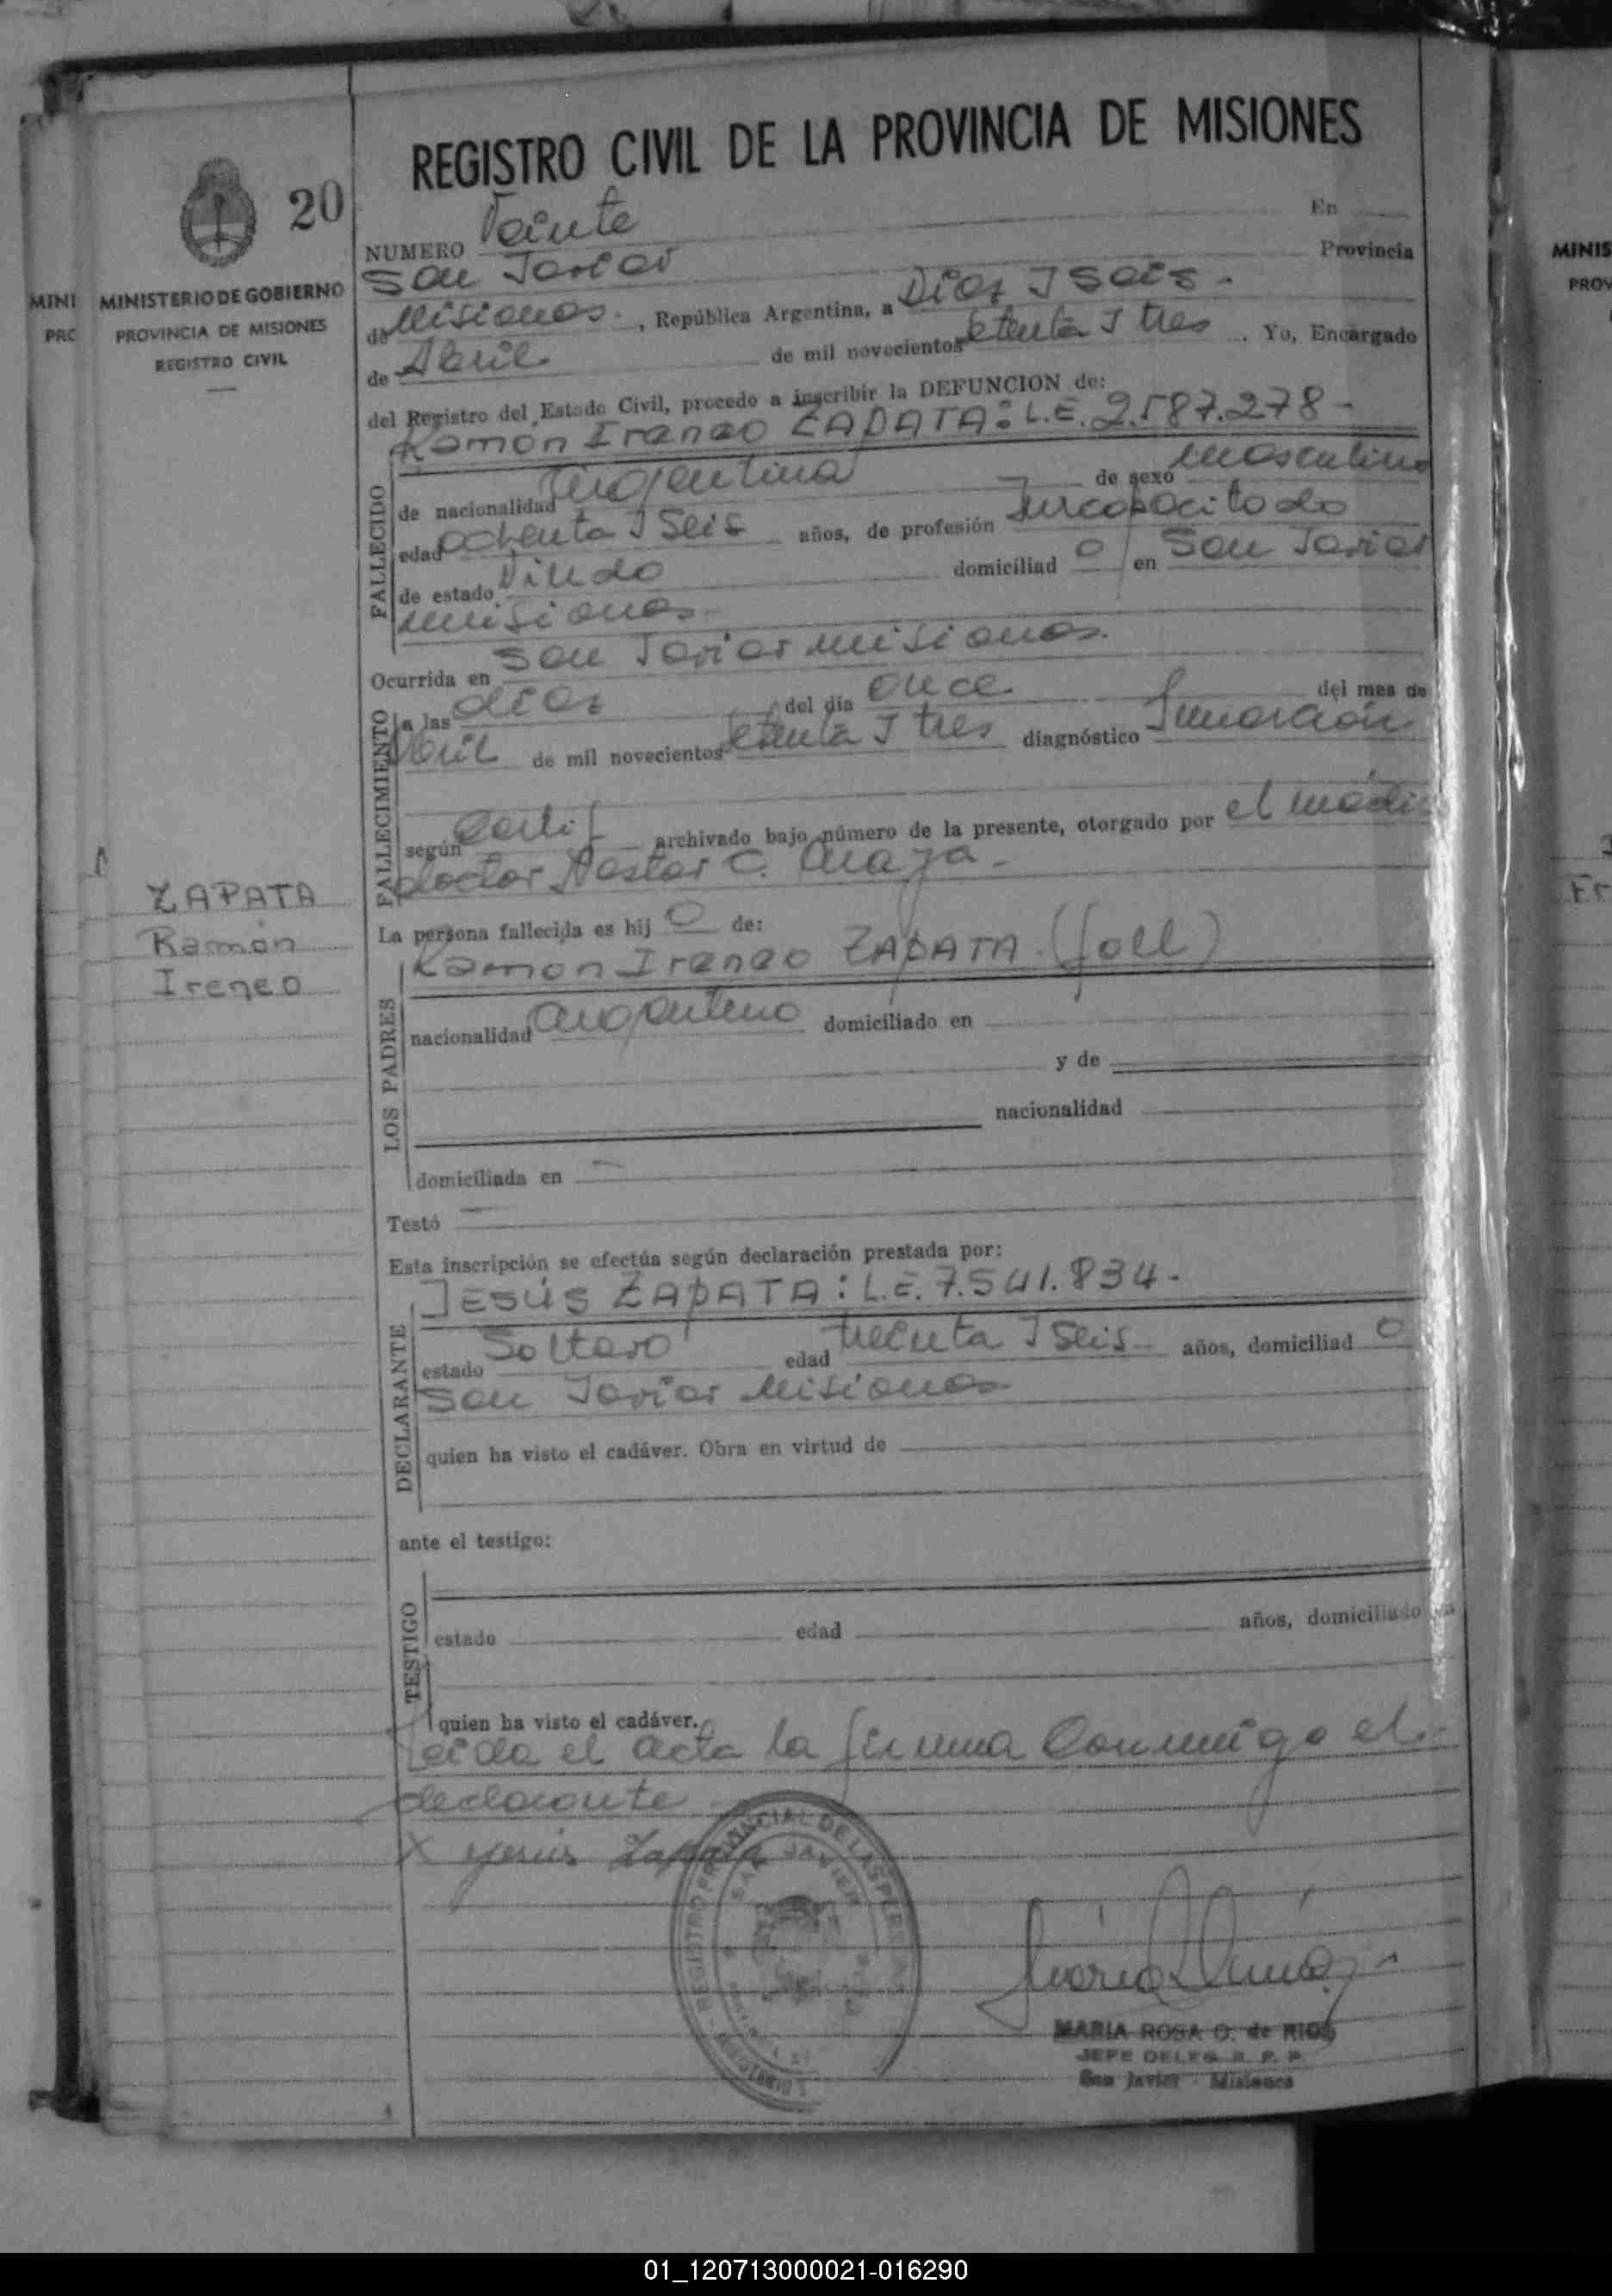 REGISTRO CIVIL DE LA PROVINCIA DE MISIONES
20
MINISTERIO DE GOBIERNO
PROVINCIA DE MISIONES
REGISTRO CIVIL
NUMERO Veinte En
San Javier Provincia
de Misiones. , República Argentina, a Diez y Seis -
de Abril de mil novecientos setenta y tres . Yo, Encargado
del Registro del Estado Civil, procedo a inscribir la DEFUNCION de:
Ramón Ireneo ZAPATA: L.E. 2.587.278-
FALLECIDO
de nacionalidad Argentina de sexo masculino
edad ochenta y Seis años, de profesión
de estado Viudo domiciliad o en San Javier
misiones
Ocurrida en San Javier misiones.
FALLECIMIENTO
a las diez del día once del mes de
Abril de mil novecientos setenta y tres diagnóstico
según Certif archivado bajo número de la presente, otorgado por el médico
doctor Nestor C. Anaya -
La persona fallecida es hij o de:
LOS PADRES
Ramon Ireneo ZAPATA (fall)
nacionalidad argentino domiciliado en
y de
nacionalidad
domiciliada en -
Testó -
Esta inscripción se efectúa según declaración prestada por:
DECLARANTE
JESÚS ZAPATA: L.E. 7.541.834-
estado Soltero edad treinta y Seis años, domiciliad o
San Javier Misiones
quien ha visto el cadáver. Obra en virtud de
ante el testigo:
TESTIGO
estado edad años, domiciliado
quien ha visto el cadáver.
Leida el acta la firma Conmigo el
declarante
X Jesús Zapata
ZAPATA
Ramón
Ireneo
SAN JAVIER
MARIA ROSA O. de RIOS
JEFE DELEG. R. P. P.
San Javier - Misiones
MINI
PRC
MINIS
PROV
01_120713000021-016290